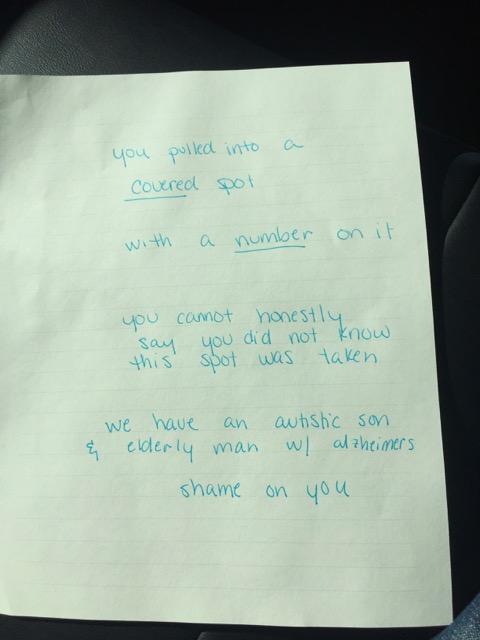 you pulled into a
covered spot
with a number on it
you cannot honestly
say you did not know
this spot was taken
we have an autistic son
& elderly man w/ alzheimers
shame on you